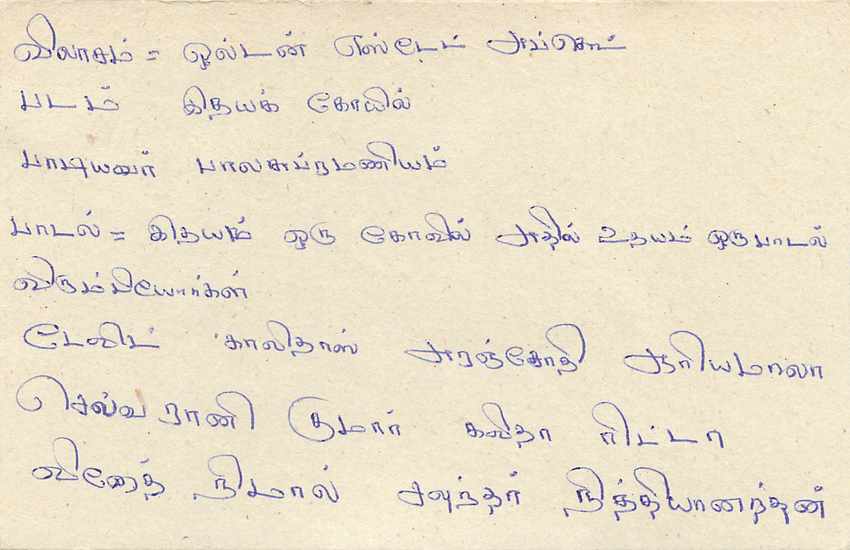 விலாசம் = ஓல்டன் எஸ்டேட் அப்கொட்
படம் இதயக் கோயில்
பாடியவர் பாலசுப்ரமணியம்
பாடல் = இதயம் ஒரு கோவில் அதில் உதயம் ஒரு பாடல்
விரும்பியோர்கள்
டேவிட் காலிதாஸ் அரஞ்சோதி ஆரியமாலா
செல்வ ராணி குமார் கவிதா ரிட்டா
வினோத் நிமால் சவுந்தர் நித்தியானந்தன்